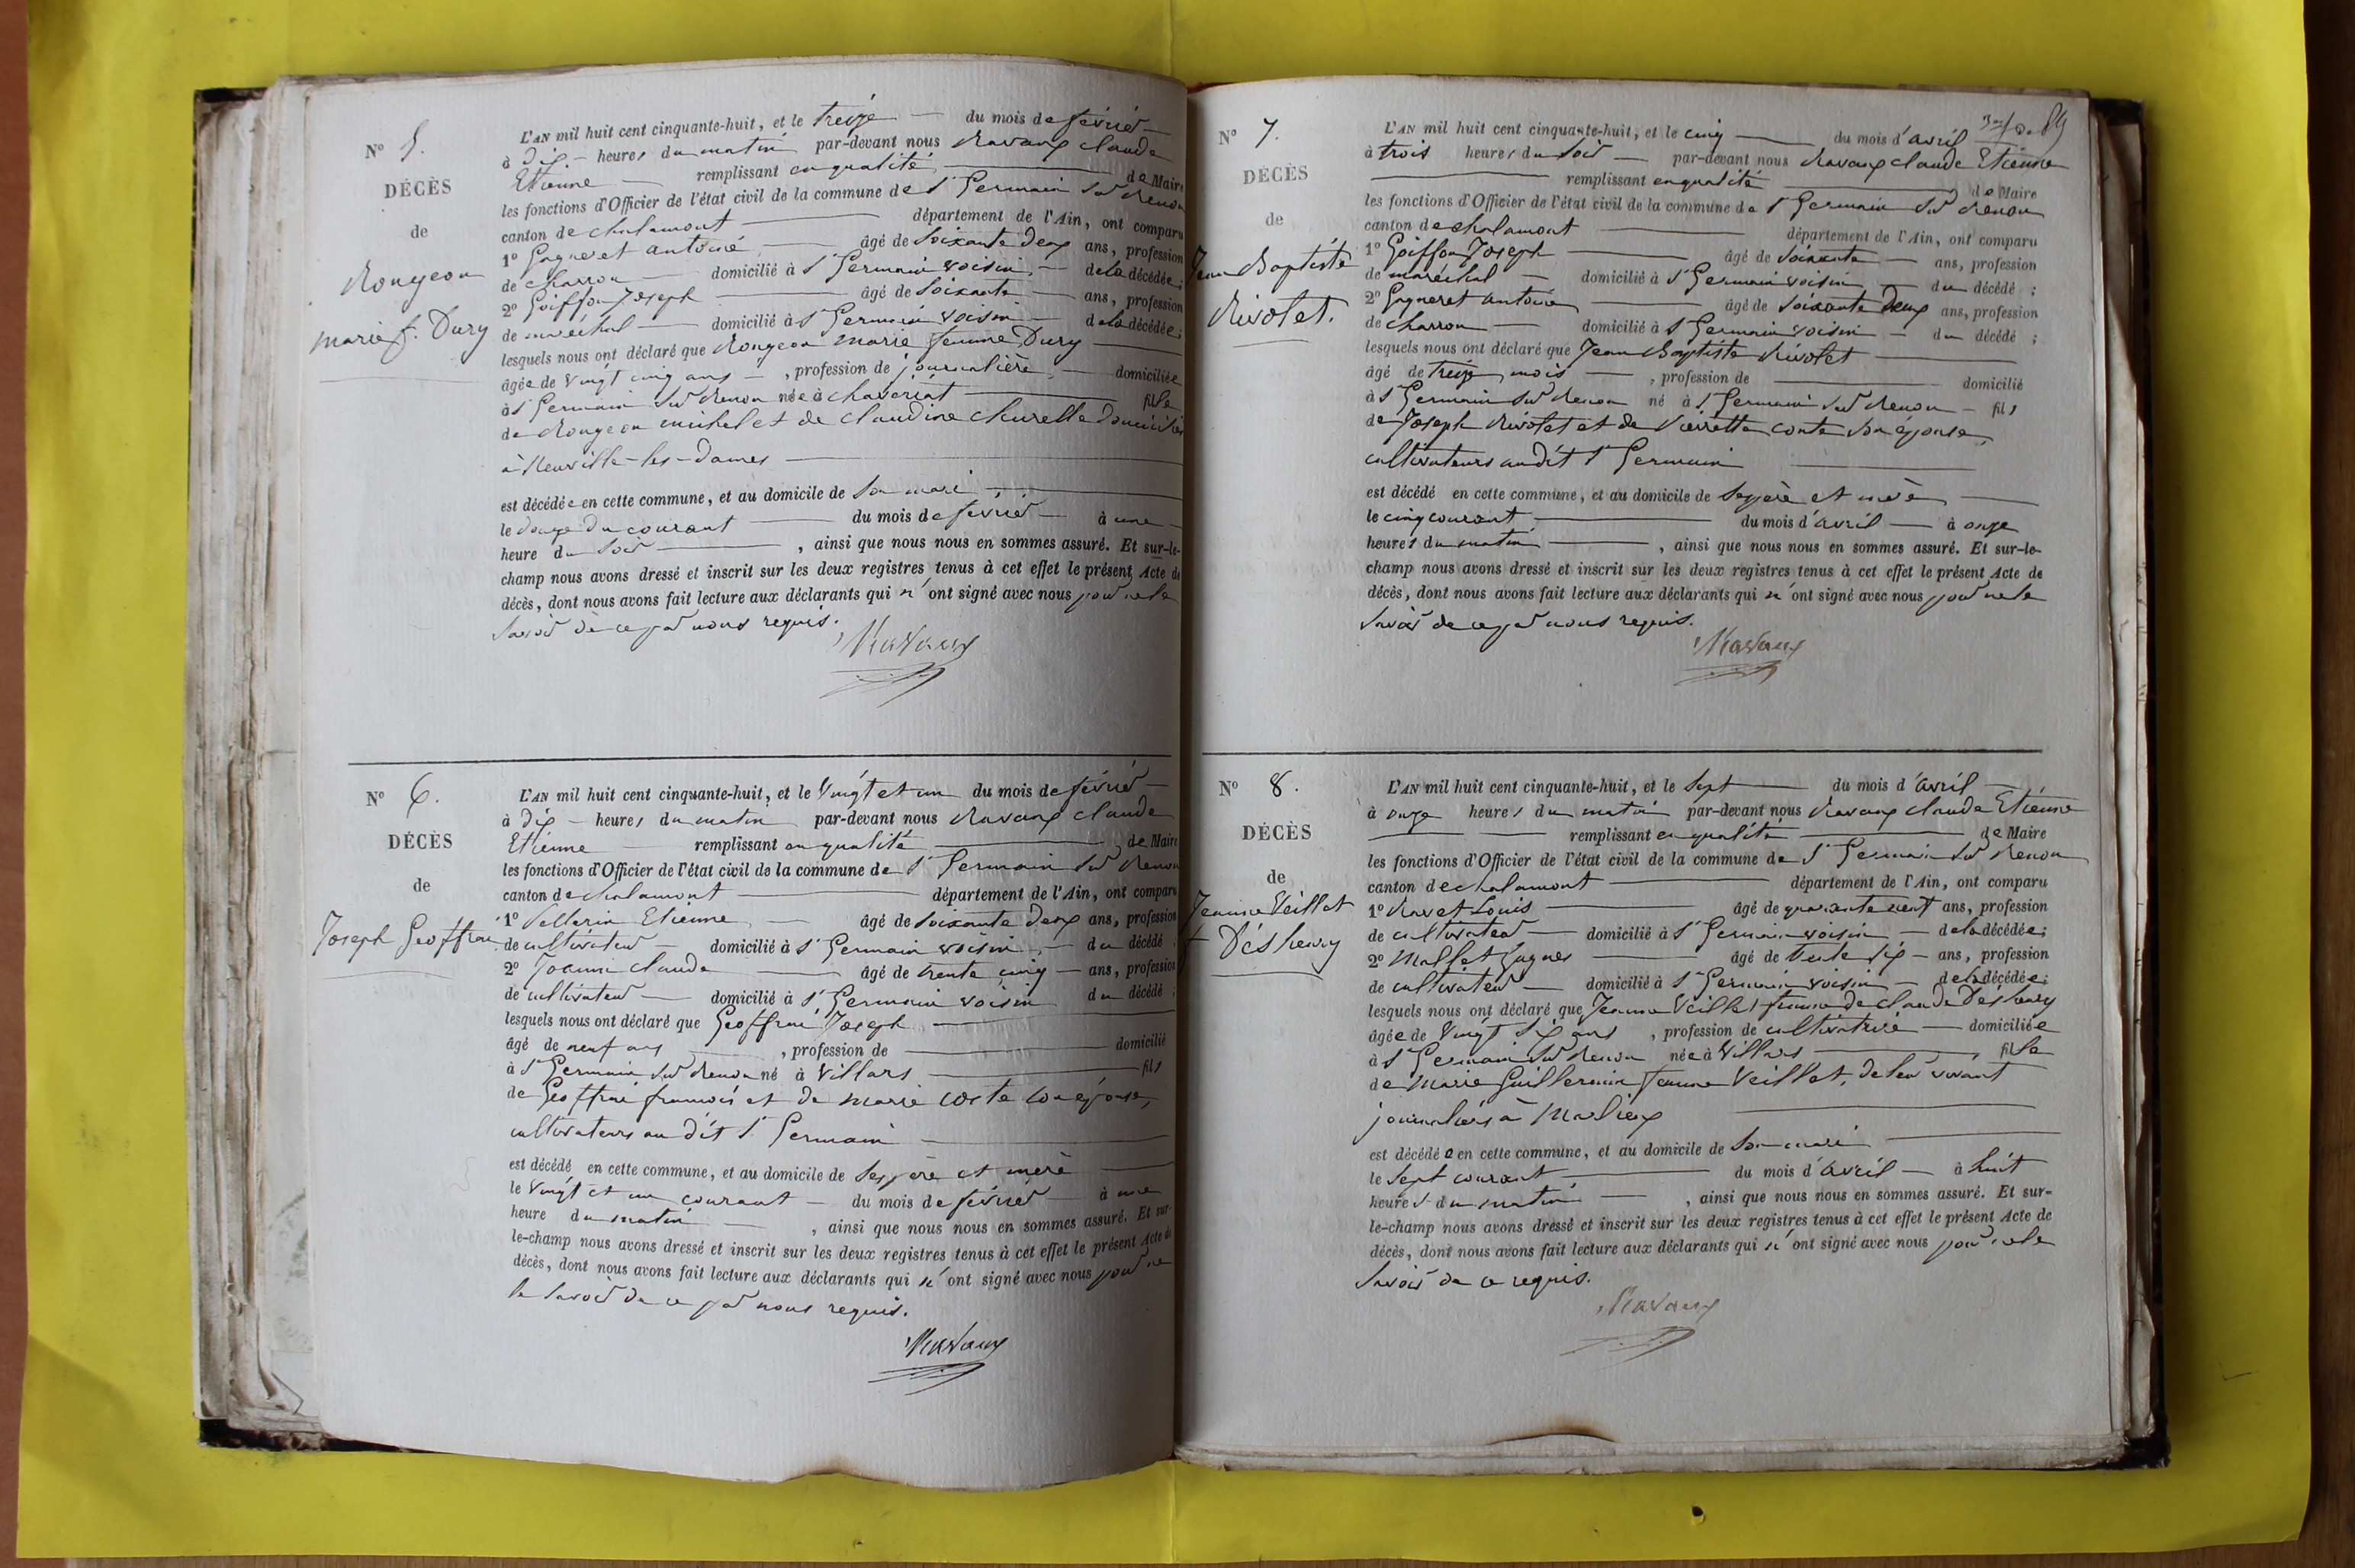 N° 5.
DÉCÈS
de
Rongeon
marie f. Dury
L'AN mil huit cent cinquante-huit, et le treize du mois de février
à dix heures du matin par-devant nous Ravaux claude
Etienne remplissant en qualité de Maire
les fonctions d'Officier de l'état civil de la commune de St Germain sur Renon
canton de chalamont département de l'Ain, ont comparu
1° Gagneret antoine âgé de soixante deux ans, profession
de charron domicilié à St Germain voisin de la décédée;
2° Goiffon Joseph âgé de soixante ans, profession
de maréchal domicilié à St Germain voisin de la décédée;
lesquels nous ont déclaré que Rongeon marie femme Dury
âgée de vingt cinq ans, profession de journalière, domiciliée
à St Germain sur Renon née à chaveriat fille
de Rongeon michel et de claudine churelle domiciliés
à Neuville-les-dames
est décédée en cette commune, et au domicile de son mari
le douze du courant du mois de février à une
heure du soir, ainsi que nous nous en sommes assuré. Et sur-le-
champ nous avons dressé et inscrit sur les deux registres tenus à cet effet le présent Acte de
décès, dont nous avons fait lecture aux déclarants qui n'ont signé avec nous pour ne le
savoir de ce par nous requis.
Ravaux
N° 6.
DÉCÈS
de
Joseph Geoffrai
L'AN mil huit cent cinquante-huit, et le vingt et un du mois de février
à dix heures du matin par-devant nous Ravaux claude
Etienne remplissant en qualité de Maire
les fonctions d'Officier de l'état civil de la commune de St Germain sur Renon
canton de chalamont département de l'Ain, ont comparu
1° Pellerin Etienne âgé de soixante deux ans, profession
de cultivateur domicilié à St Germain voisin du décédé;
2° Joanin claude âgé de trente cinq ans, profession
de cultivateur domicilié à St Germain voisin du décédé;
lesquels nous ont déclaré que Geoffrai Joseph
âgé de neuf ans, profession de domicilié
à St Germain sur Renon né à Villars fils
de Geoffrai francois et de marie coste son épouse,
cultivateurs au dit St Germain
est décédé en cette commune, et au domicile de ses père et mère
le vingt et un courant du mois de février à une
heure du matin, ainsi que nous nous en sommes assuré. Et sur-
le-champ nous avons dressé et inscrit sur les deux registres tenus à cet effet le présent Acte de
décès, dont nous avons fait lecture aux déclarants qui n'ont signé avec nous pour ne
le savoir de ce par nous requis.
Ravaux
89
N° 7.
DÉCÈS
de
Jean Baptiste
Rivolet.
L'AN mil huit cent cinquante-huit, et le cinq du mois d'avril
à trois heures du soir par-devant nous Ravaux claude Etienne
remplissant en qualité de Maire
les fonctions d'Officier de l'état civil de la commune de St Germain sur Renon
canton de chalamont département de l'Ain, ont comparu
1° Goiffon Joseph âgé de soixante ans, profession
de maréchal domicilié à St Germain voisin du décédé;
2° Gagneret antoine âgé de soixante deux ans, profession
de charron domicilié à St Germain voisin du décédé;
lesquels nous ont déclaré que Jean Baptiste Rivolet
âgé de treize mois, profession de domicilié
à St Germain sur Renon né à St Germain sur Renon fils
de Joseph Rivolet et de Pierrette conte son épouse,
cultivateurs au dit St Germain
est décédé en cette commune, et au domicile de ses père et mère
le cinq courant du mois d'avril à onze
heures du matin, ainsi que nous nous en sommes assuré. Et sur-le-
champ nous avons dressé et inscrit sur les deux registres tenus à cet effet le présent Acte de
décès, dont nous avons fait lecture aux déclarants qui n'ont signé avec nous pour ne le
savoir de ce par nous requis.
Ravaux
N° 8.
DÉCÈS
de
Jeanne Veillet
f Déshenry
L'AN mil huit cent cinquante-huit, et le sept du mois d'avril
à onze heures du matin par-devant nous Ravaux claude Etienne
remplissant en qualité de Maire
les fonctions d'Officier de l'état civil de la commune de St Germain sur Renon
canton de chalamont département de l'Ain, ont comparu
1° Ravet Louis âgé de quarante neuf ans, profession
de cultivateur domicilié à St Germain voisin de la décédée;
2° Mallet Jaques âgé de trente six ans, profession
de cultivateur domicilié à St Germain voisin de la décédée;
lesquels nous ont déclaré que Jeanne Veillet femme de claude Déshenry
âgée de vingt six ans, profession de cultivatrice domiciliée
à St Germain sur Renon née à Villars fille
de Marie Guillermin femme Veillet, de leur vivant
journaliers à Marlieux
est décédée en cette commune, et au domicile de son mari
le sept courant du mois d'avril à huit
heures du matin, ainsi que nous nous en sommes assuré. Et sur-
le-champ nous avons dressé et inscrit sur les deux registres tenus à cet effet le présent Acte de
décès, dont nous avons fait lecture aux déclarants qui n'ont signé avec nous pour ne le
savoir de ce requis.
Ravaux